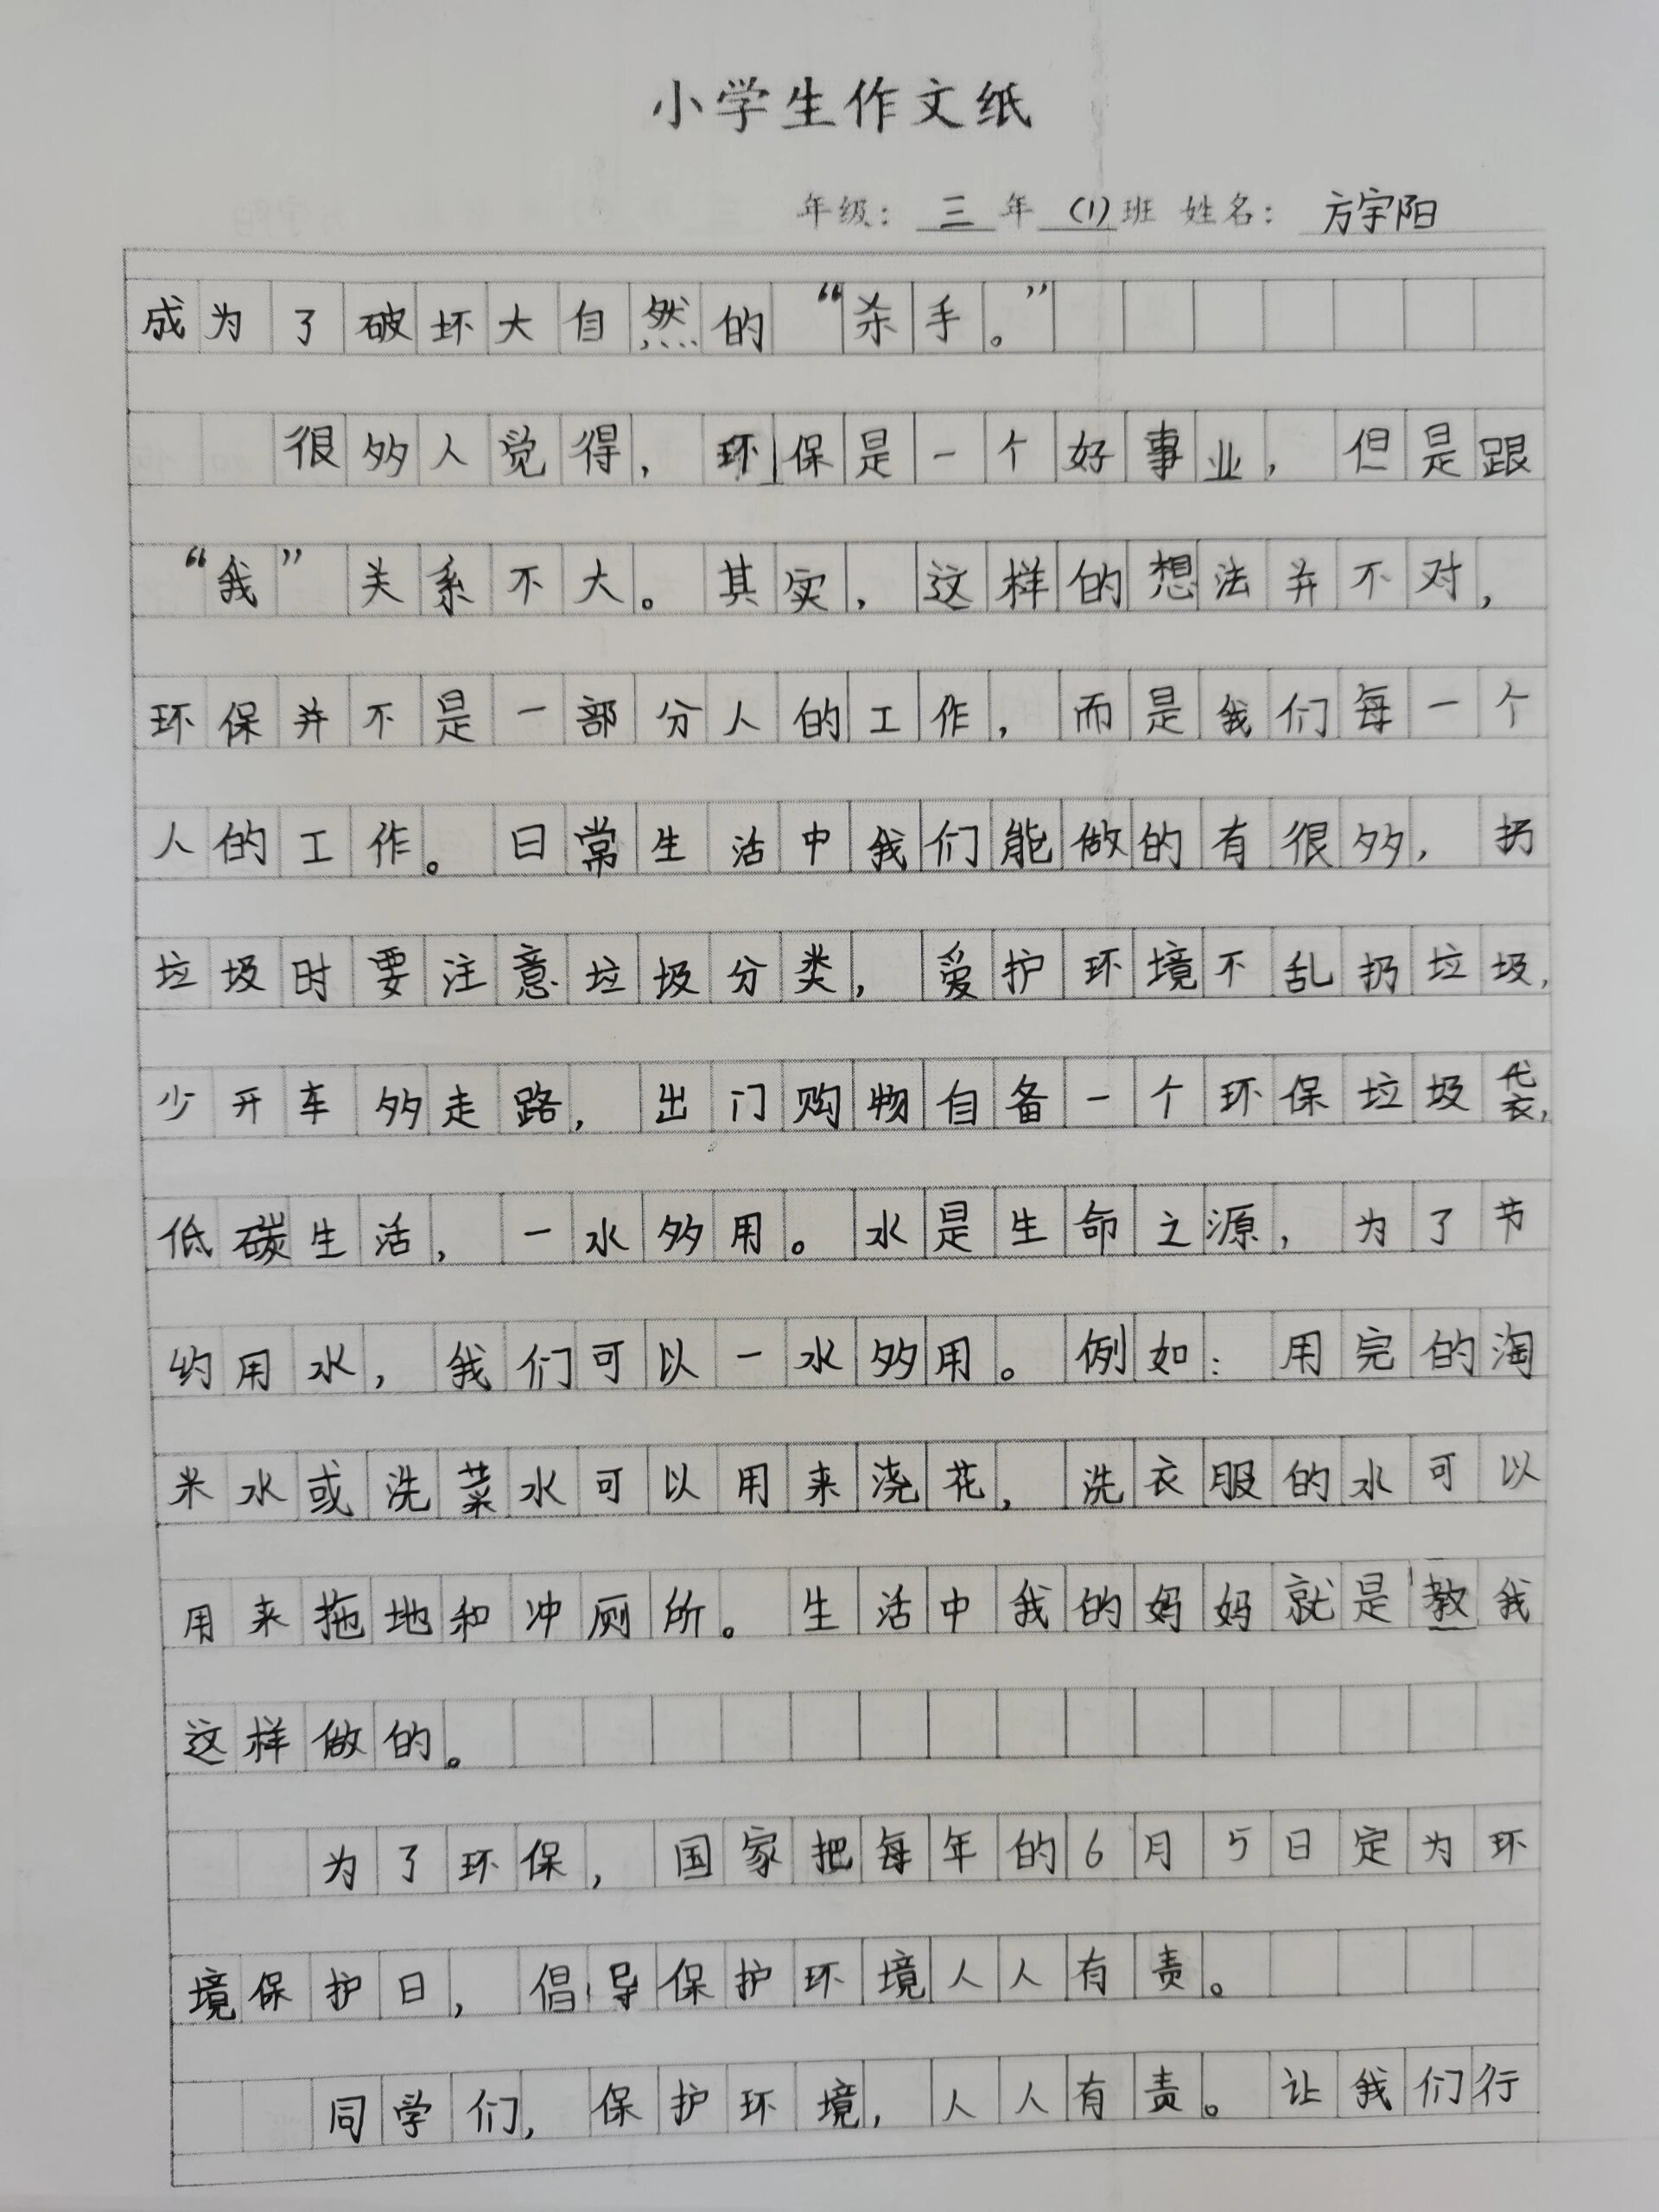 小学生作文纸
年级：三年（1）班 姓名：方宇阳
成为了破坏大自然的“杀手。”
很多人觉得，环保是一个好事业，但是跟
“我”关系不大。其实，这样的想法并不对，
环保并不是一部分人的工作，而是我们每一个
人的工作。日常生活中我们能做的有很多，扔
垃圾时要注意垃圾分类，爱护环境不乱扔垃圾，
少开车多走路，出门购物自备一个环保垃圾袋，
低碳生活，一水多用。水是生命之源，为了节
约用水，我们可以一水多用。例如：用完的淘
米水或洗菜水可以用来浇花，洗衣服的水可以
用来拖地和冲厕所。生活中我的妈妈就是教我
这样做的。
为了环保，国家把每年的6月5日定为环
境保护日，倡导保护环境人人有责。
同学们，保护环境，人人有责。让我们行